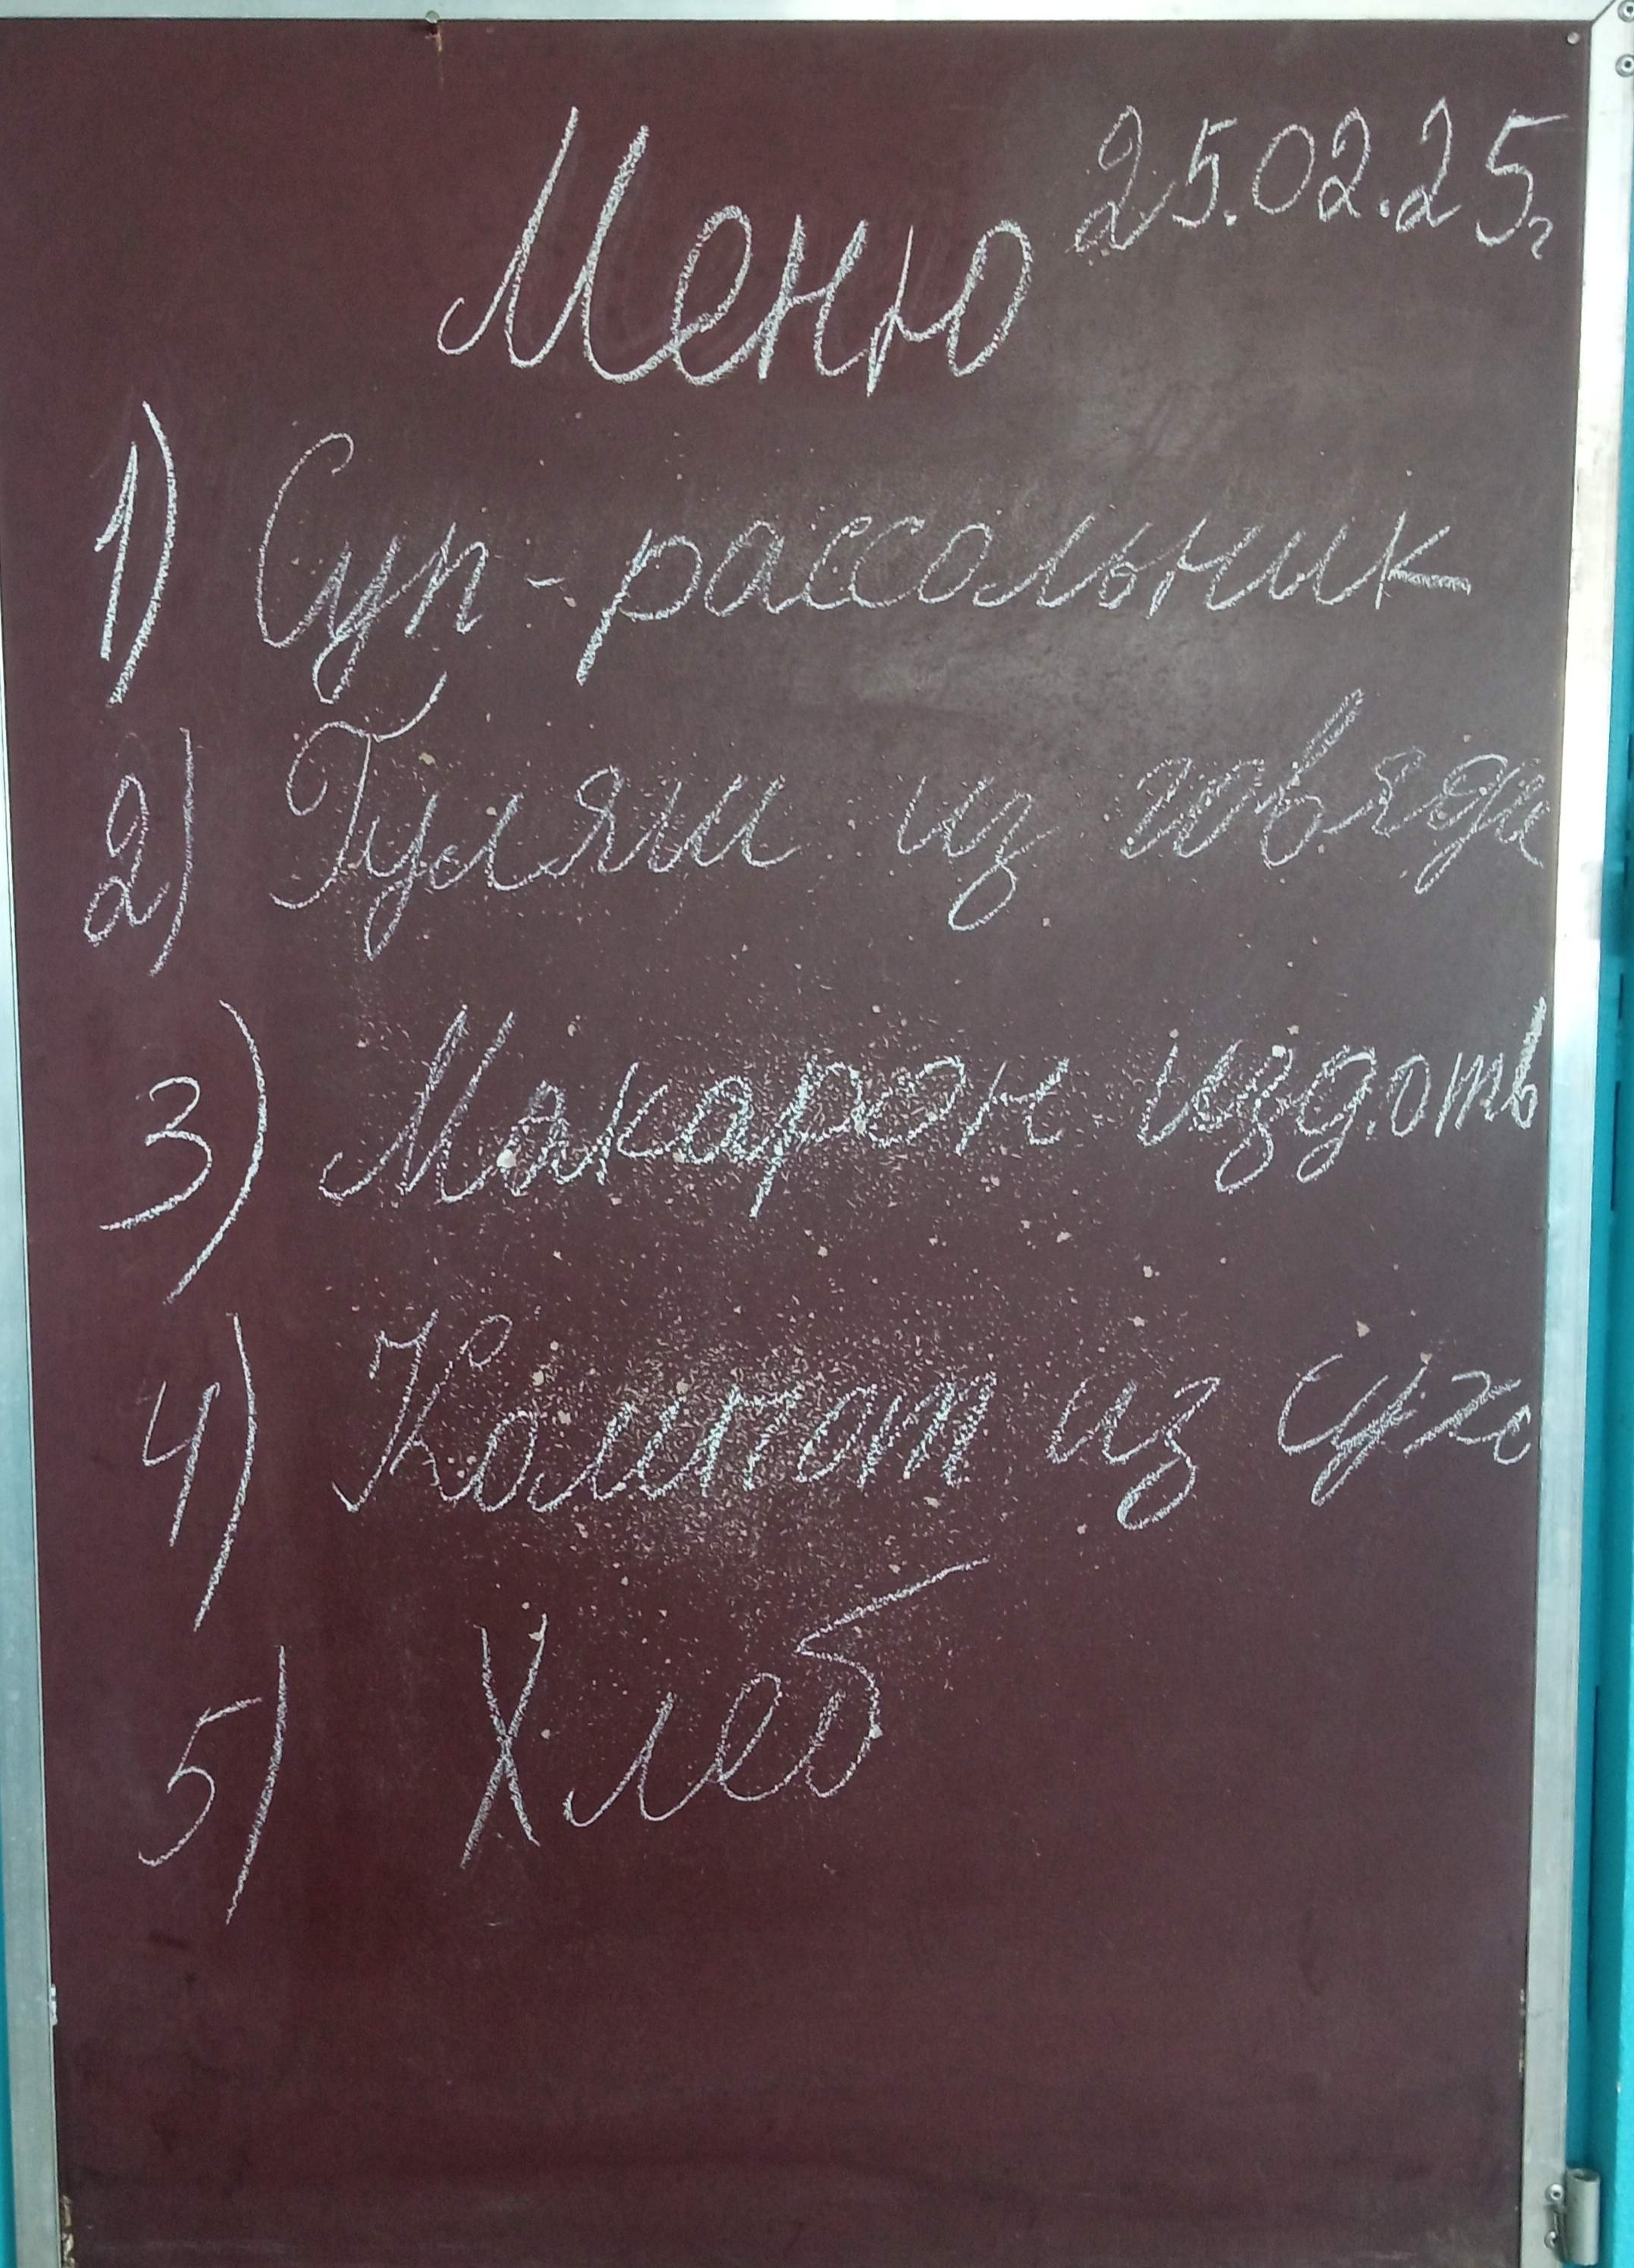 25.02.25г
Меню
1) Суп-рассольник
2) Гуляш из говяди
3) Макарон. изд.отв
4) Компот из сухо
5) Хлеб